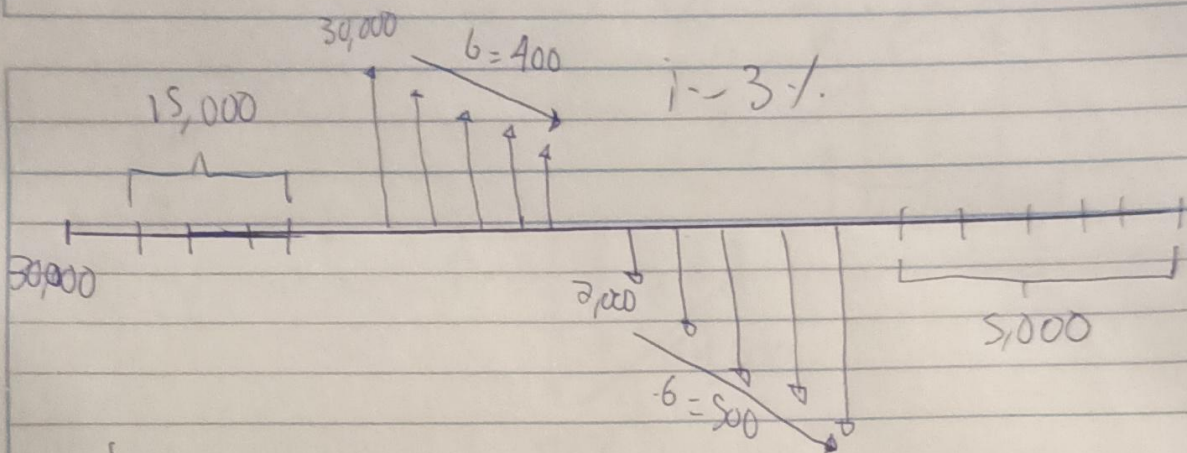 30,000
6=400
i~3%
15,000
30,000
2,000
6=500
5,000